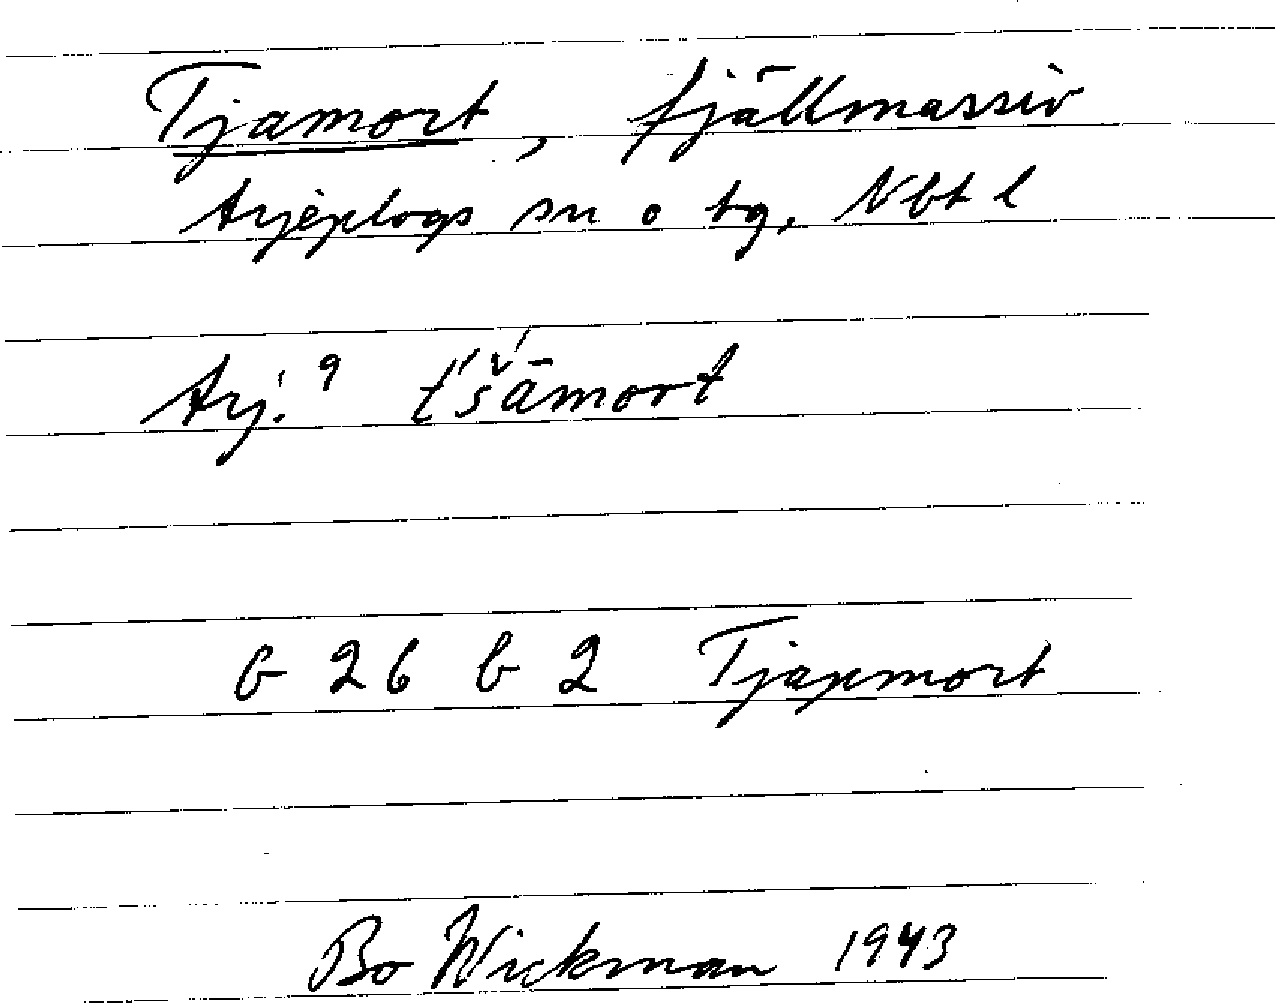 Tjamort, fjällmassiv
Arjeplogs sn o tg, Nbt l
Arj. 9 t́'š́āmort
G 26 G 2 Tjaxmort
Bo Wickman 1943